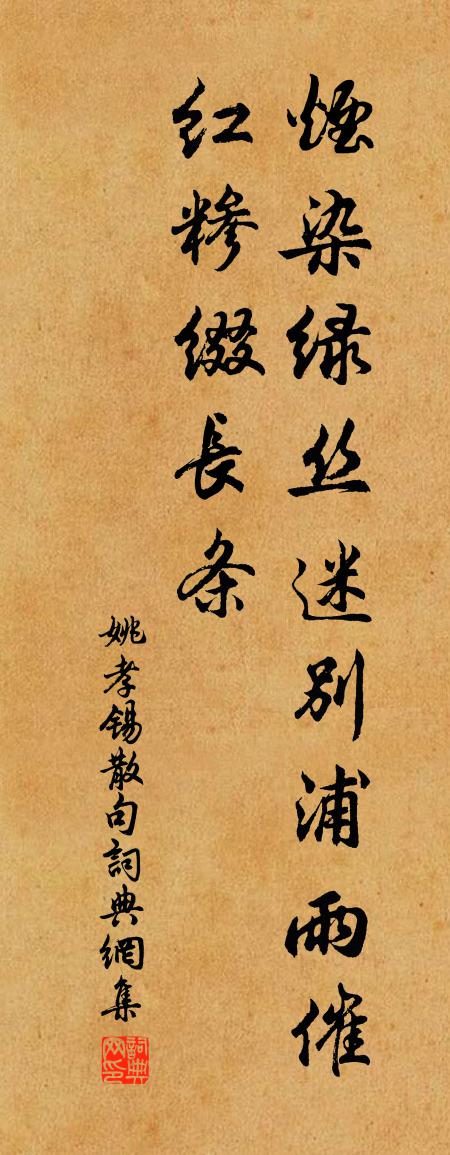 烟染绿丝迷别浦雨催
红糁缀長条
姚孝锡散句詞典網集
詞典网印